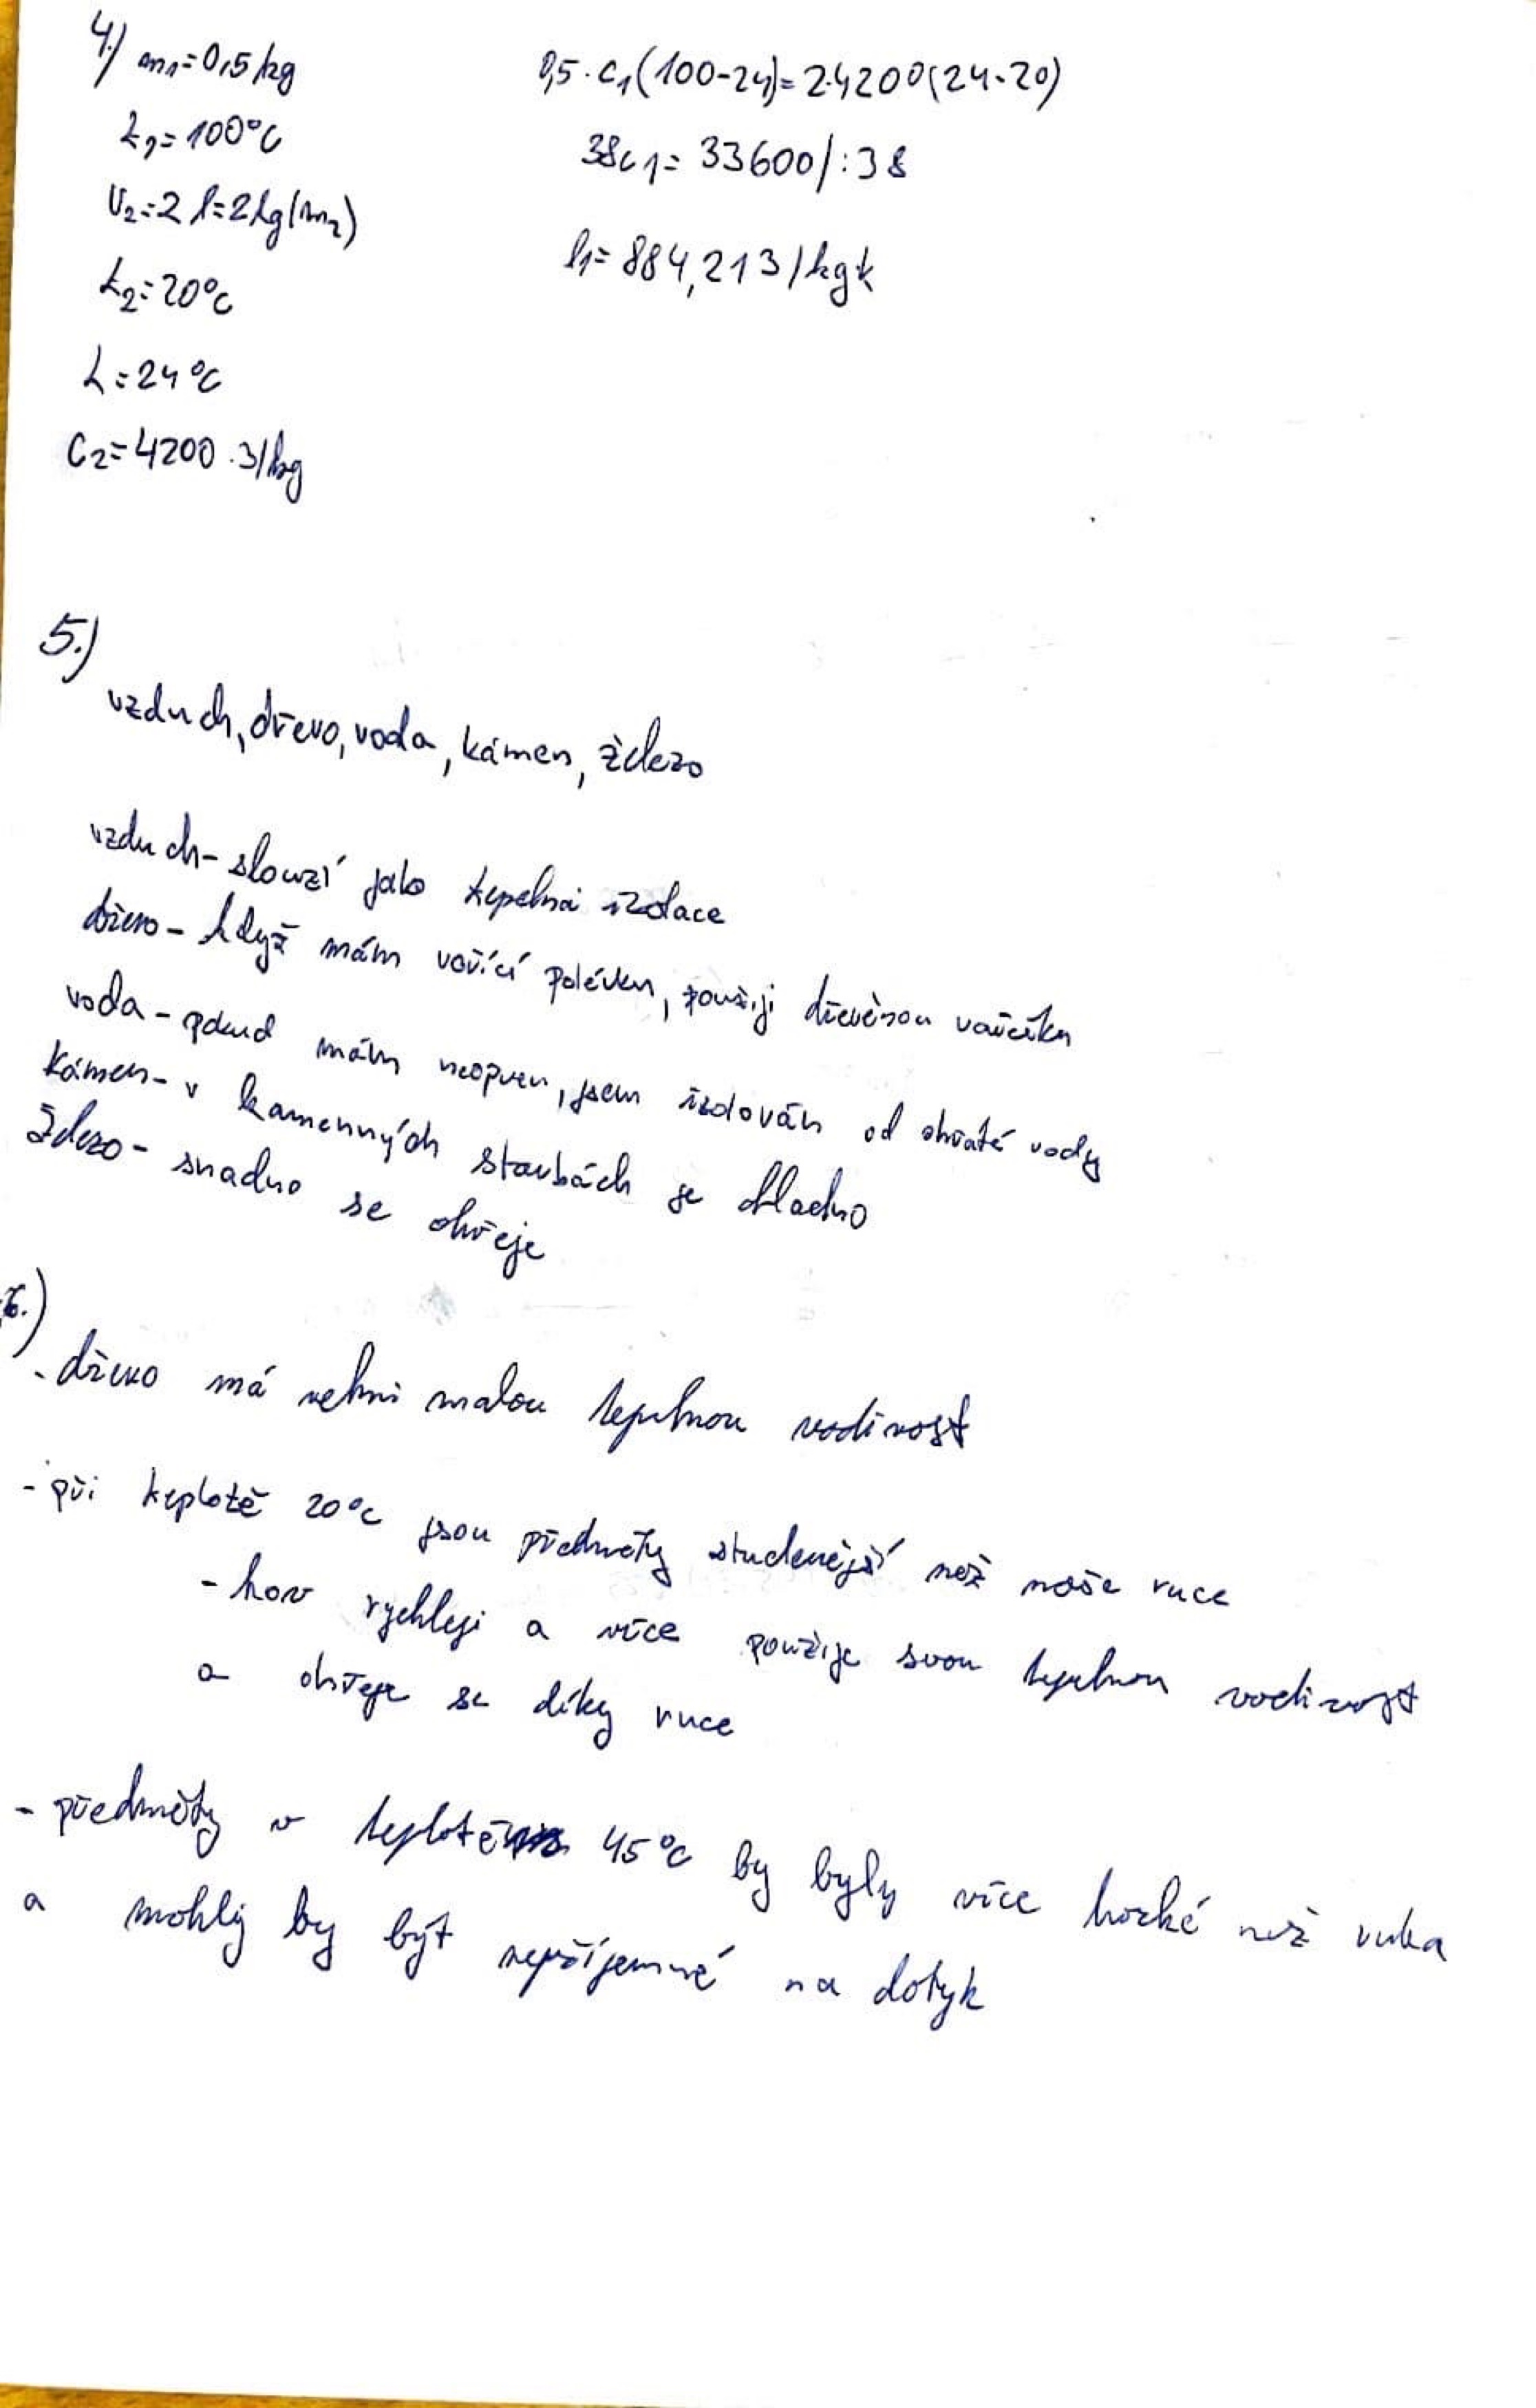 4.) m₁=0,5/kg
t₁=100°C
V₂=2 l=2kg(m₂)
t₂=20°C
t=24°C
c₂=4200 J/kg
0,5·c₁(100-24)=2·4200(24-20)
38c₁= 33600/:38
c₁= 884,21J/kgk
5.)
vzduch, dřevo, voda, kámen, železo
vzduch- slouzí jako tepelná izolace
dřevo- když mám vařící polévku, použiji dřevěnou vařečku
voda- pokud mám neopren, jsem izolován od ohřáté vody
kámen- v kamenných stavbách je chladno
železo- snadno se ohřeje
6.)
- dřevo má velmi malou tepelnou vodivost
- při teplotě 20°C jsou předměty studenější než naše ruce
- kov rychleji a více použije svou tepelnou vodivost
a ohřeje se díky ruce
- předměty v teplotě 45°C by byly více horké než ruka
a mohly by být nepříjemné na dotyk